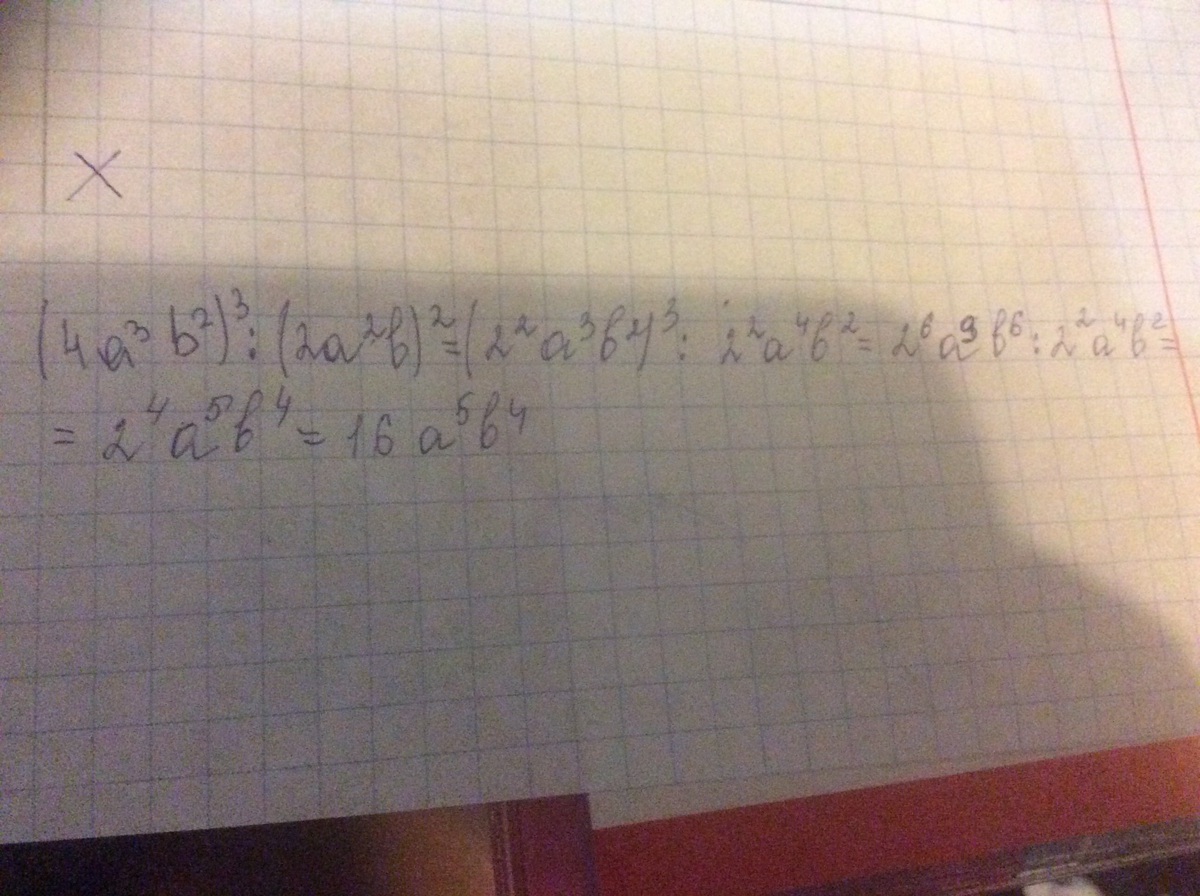 X
(4a³ b²)³ : (2a²b)² = (2²a³b²)³ : 2²a⁴b² = 2⁶a⁹b⁶ : 2²a⁴b² =
= 2⁴a⁵b⁴ = 16 a⁵b⁴